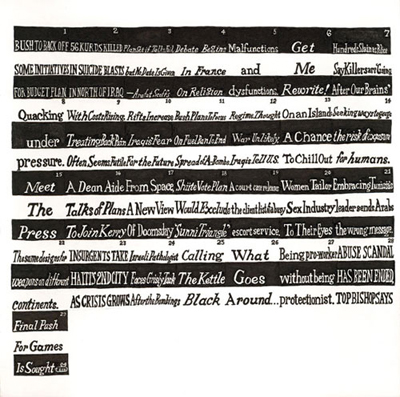 1 2 3 4 5 6 7
BUSH TO BACK OFF 56 KURDS KILLED Plan Set if Talks Fail Debate Begins Malfunctions Get Hundreds Slain
SOME INITIATIVES IN SUICIDE BLASTS but No Date Is Given In France and Me Say Killers are Going
FOR BUDGET PLAN IN NORTH OF IRAQ —Arafat Scoffs On Religion dysfunctions. Rewrite! "After Our Brains"
8 9 10 11 12 13 14
Quacking With Costs Rising, Rift Is Increase Bush Plans to Focus Regime Thought On an Island Seeking
under Treating Back Pain Iraqis Fear On Fuel Ban To End War Unlikely A Chance the risk
pressure. Often Seems Futile For the Future Spread of A-Bombs Iraqis Tell U.S. To Chill Out for humans.
15 16 17 18 19 20 21
Meet A Dean Aide From Space Shiite Vote Plan A court can release Women Tailor Embracing
The Talks of Plans A New View Would Exclude the client list of a busy Sex Industry leader sends Arabs
Press To Join Kerry Of Doomsday 'Sunni Triangle' escort service. To Their Eyes the wrong message.
22 23 24 25 26 27 28
The same designs for INSURGENTS TAKE Israeli Pathologist Calling What Being pro-worker ABUSE SCANDAL
weapons on different HAITI'S 2ND CITY Faces Grisly Task The Kettle Goes without being HAS BEEN ENDED,
continents. AS CRISIS GROWS After the Bombings Black Around... protectionist. TOP BISHOP SAYS
29
Final Push
For Games
Is Sought